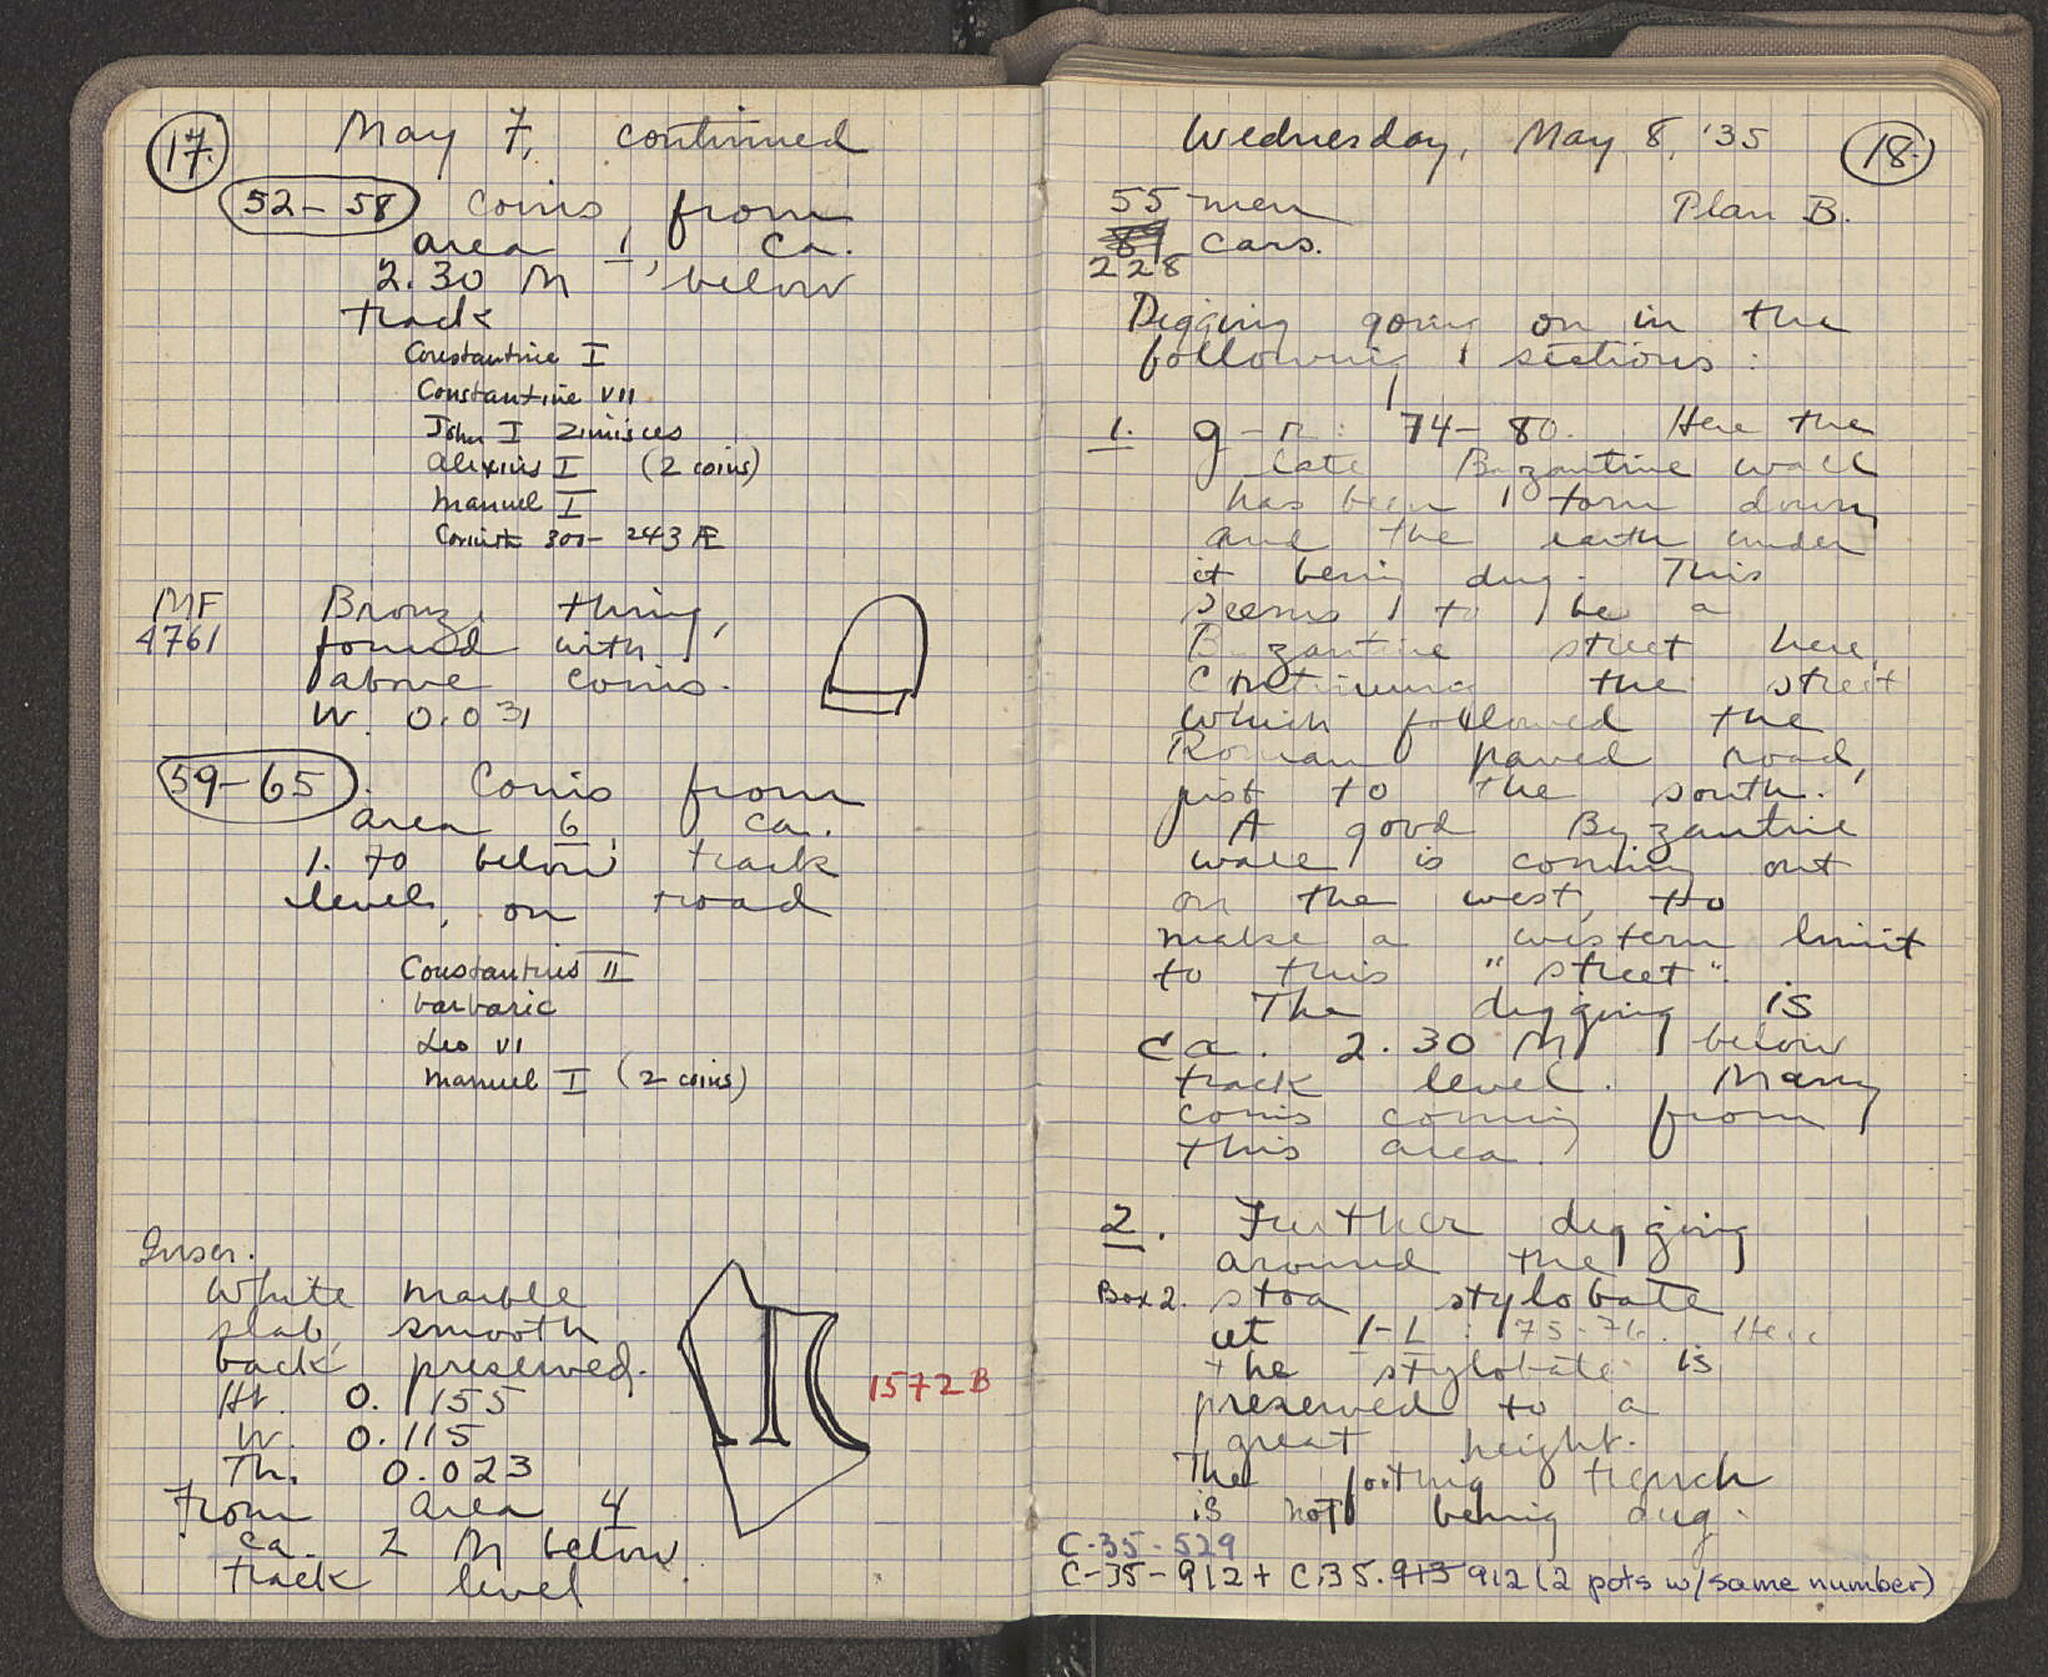 17.
May 7, continued
52-58 Coins from
area 1, ca.
2.30 M below
track
Constantine I
Constantine VII
John I Zimisces
Alexius I (2 coins)
Manuel I
Corinth 300-243 Æ
MF
4761
Bronze thing,
found with
above coins.
W. 0.031
59-65. Coins from
area 6, ca.
1.70 below track
level, on road
Constantius II
barbaric
Leo VI
Manuel I (2 coins)
Inscr.
White marble
slab, smooth
back preserved.
Ht. 0.1155
W. 0.115
Th. 0.023
1572B
From area 4
ca. 2 M below
track level
Wednesday, May 8, '35
18.
55 men
Plan B.
89 cars.
228
Digging going on in the
following sections:
1. g-n: 74-80. Here the
late Byzantine wall
has been torn down
and the earth under
it being dug. This
seems to be a
Byzantine street here,
continuing the street
which followed the
Roman paved road,
just to the south.
A good Byzantine
wall is coming out
on the west, to
make a western limit
to this "street".
The digging is
ca. 2.30 M below
track level. Many
coins coming from
this area.
2. Further digging
around the
Box 2. stoa stylobate
at 75-76. Here
the stylobate is
preserved to a
great height.
The footing trench
is not being dug.
C-35-529
C-35-912 + C.35.913 912 (2 pots w/same number)